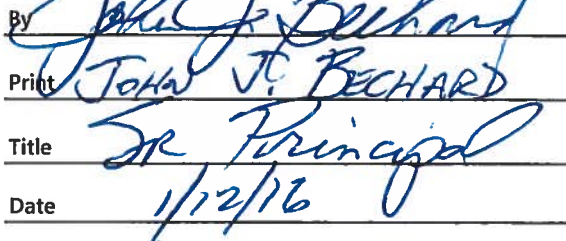 By John J. Bechard
Print JOHN J. BECHARD
Title SR Principal
Date 1/12/16